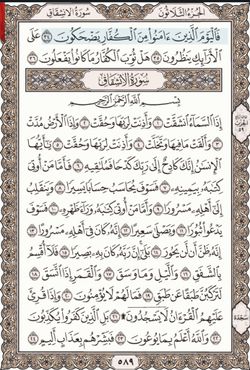 سُورَةُ الانشِقَاقِ الجُزْءُ الثَّلَاثُونَ
فَالْيَوْمَ الَّذِينَ ءَامَنُوا مِنَ الْكُفَّارِ يَضْحَكُونَ ٣٤ عَلَى
الْأَرَائِكِ يَنظُرُونَ ٣٥ هَلْ ثُوِّبَ الْكُفَّارُ مَا كَانُوا يَفْعَلُونَ ٣٦
سُورَةُ الانشِقَاقِ
بِسْمِ اللَّهِ الرَّحْمَٰنِ الرَّحِيمِ
إِذَا السَّمَاءُ انشَقَّتْ ١ وَأَذِنَتْ لِرَبِّهَا وَحُقَّتْ ٢ وَإِذَا الْأَرْضُ مُدَّتْ
٣ وَأَلْقَتْ مَا فِيهَا وَتَخَلَّتْ ٤ وَأَذِنَتْ لِرَبِّهَا وَحُقَّتْ ٥ يَا أَيُّهَا
الْإِنسَانُ إِنَّكَ كَادِحٌ إِلَىٰ رَبِّكَ كَدْحًا فَمُلَاقِيهِ ٦ فَأَمَّا مَنْ أُوتِيَ
كِتَابَهُ بِيَمِينِهِ ٧ فَسَوْفَ يُحَاسَبُ حِسَابًا يَسِيرًا ٨ وَيَنقَلِبُ
إِلَىٰ أَهْلِهِ مَسْرُورًا ٩ وَأَمَّا مَنْ أُوتِيَ كِتَابَهُ وَرَاءَ ظَهْرِهِ ١٠ فَسَوْفَ
يَدْعُو ثُبُورًا ١١ وَيَصْلَىٰ سَعِيرًا ١٢ إِنَّهُ كَانَ فِي أَهْلِهِ مَسْرُورًا ١٣
إِنَّهُ ظَنَّ أَن لَّن يَحُورَ ١٤ بَلَىٰ إِنَّ رَبَّهُ كَانَ بِهِ بَصِيرًا ١٥ فَلَا أُقْسِمُ
بِالشَّفَقِ ١٦ وَاللَّيْلِ وَمَا وَسَقَ ١٧ وَالْقَمَرِ إِذَا اتَّسَقَ ١٨
لَتَرْكَبُنَّ طَبَقًا عَن طَبَقٍ ١٩ فَمَا لَهُمْ لَا يُؤْمِنُونَ ٢٠ وَإِذَا قُرِئَ
عَلَيْهِمُ الْقُرْءَانُ لَا يَسْجُدُونَ ۩ ٢١ بَلِ الَّذِينَ كَفَرُوا يُكَذِّبُونَ
٢٢ وَاللَّهُ أَعْلَمُ بِمَا يُوعُونَ ٢٣ فَبَشِّرْهُم بِعَذَابٍ أَلِيمٍ ٢٤
سَجْدَة
٥٨٩